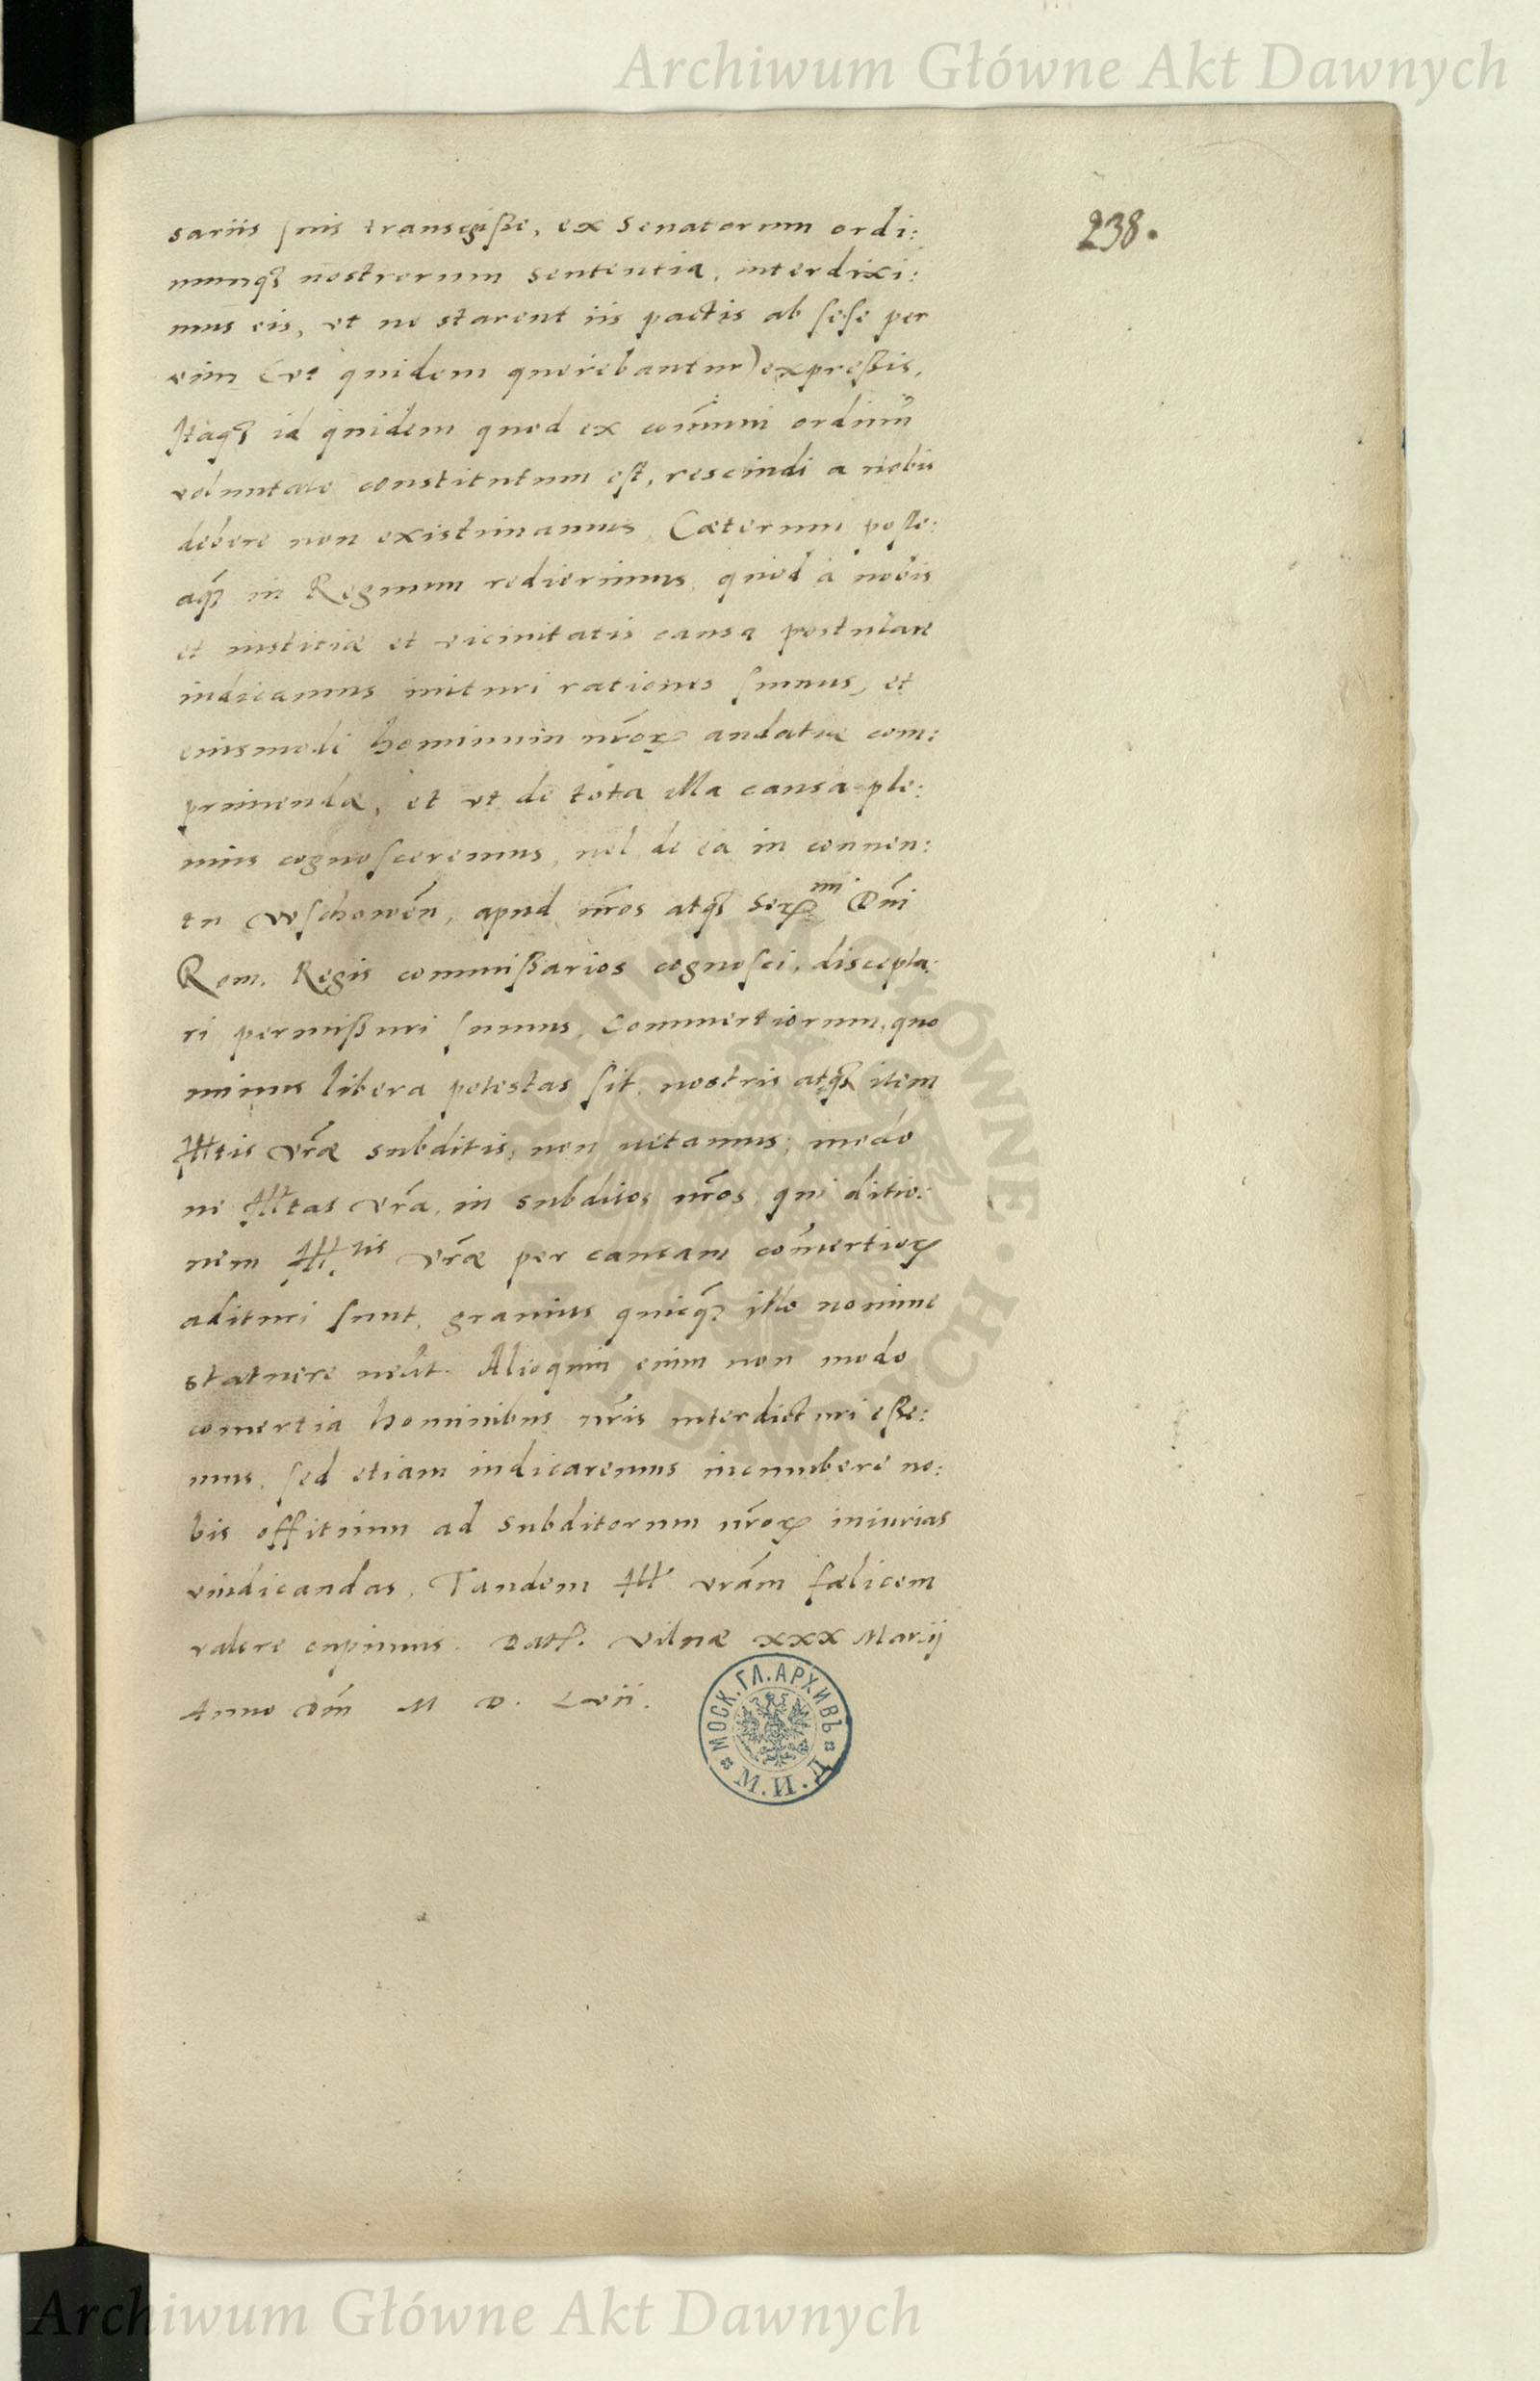 Archiwum Główne Akt Dawnych
238.
sariis suis transegisse, ex senatorum ordi:
numq3 nostrorum sententia, interdixi:
mus eis, vt ne starent iis pactis ab sese per
vim (vt quidem querebantur) expressis,
Itaq3 id quidem quod ex com̄uni ordinū
voluntate constitutum est, rescindi a nobis
debere non existimamus, Cæterum poste:
aq̃3 in Regnum redierimus, quod à nobis
et iustitiæ et vicinitatis causa postulare
iudicamus inituri rationes sumus, et
eiusmodi hominum nr̃oꝝ audatiæ com:
primendæ, et vt de tota illa causa ple:
nius cognosceremus, uel de ea in conuen:
tu Wschowēn, apud nr̃os atq3 Ser^mi Dn̄i
Rom. Regis commissarios cognosci, discepta:
ri permissuri sumus. Commertiorum, quo
minus libera potestas sit, nostris atq3 item
Mtis vr̃æ subditis, non uetamus, modo
ne Mtas vr̃a, in subditos nr̃os, qui ditio:
nem M.^tis vr̃æ per causam com̄ertioꝝ
adituri sunt, grauius quicq̃3 illo nomine
statuere uelit. Alioquin enim non modo
com̄ertia hominibus nr̃is interdicturi esse:
mus, sed etiam iudicaremus incumbere no:
bis offitium ad subditorum nr̃oꝝ iniurias
vindicandas, Tandem M vrām fælicem
valere cupimus. Datʃ. Vilnæ xxx Martij
Anno Dn̄i M D. Lvii.
МОСК. ГЛ. АРХИВЪ
М. И. Д
ARCHIWUM GŁÓWNE AKT DAWNYCH
Archiwum Główne Akt Dawnych